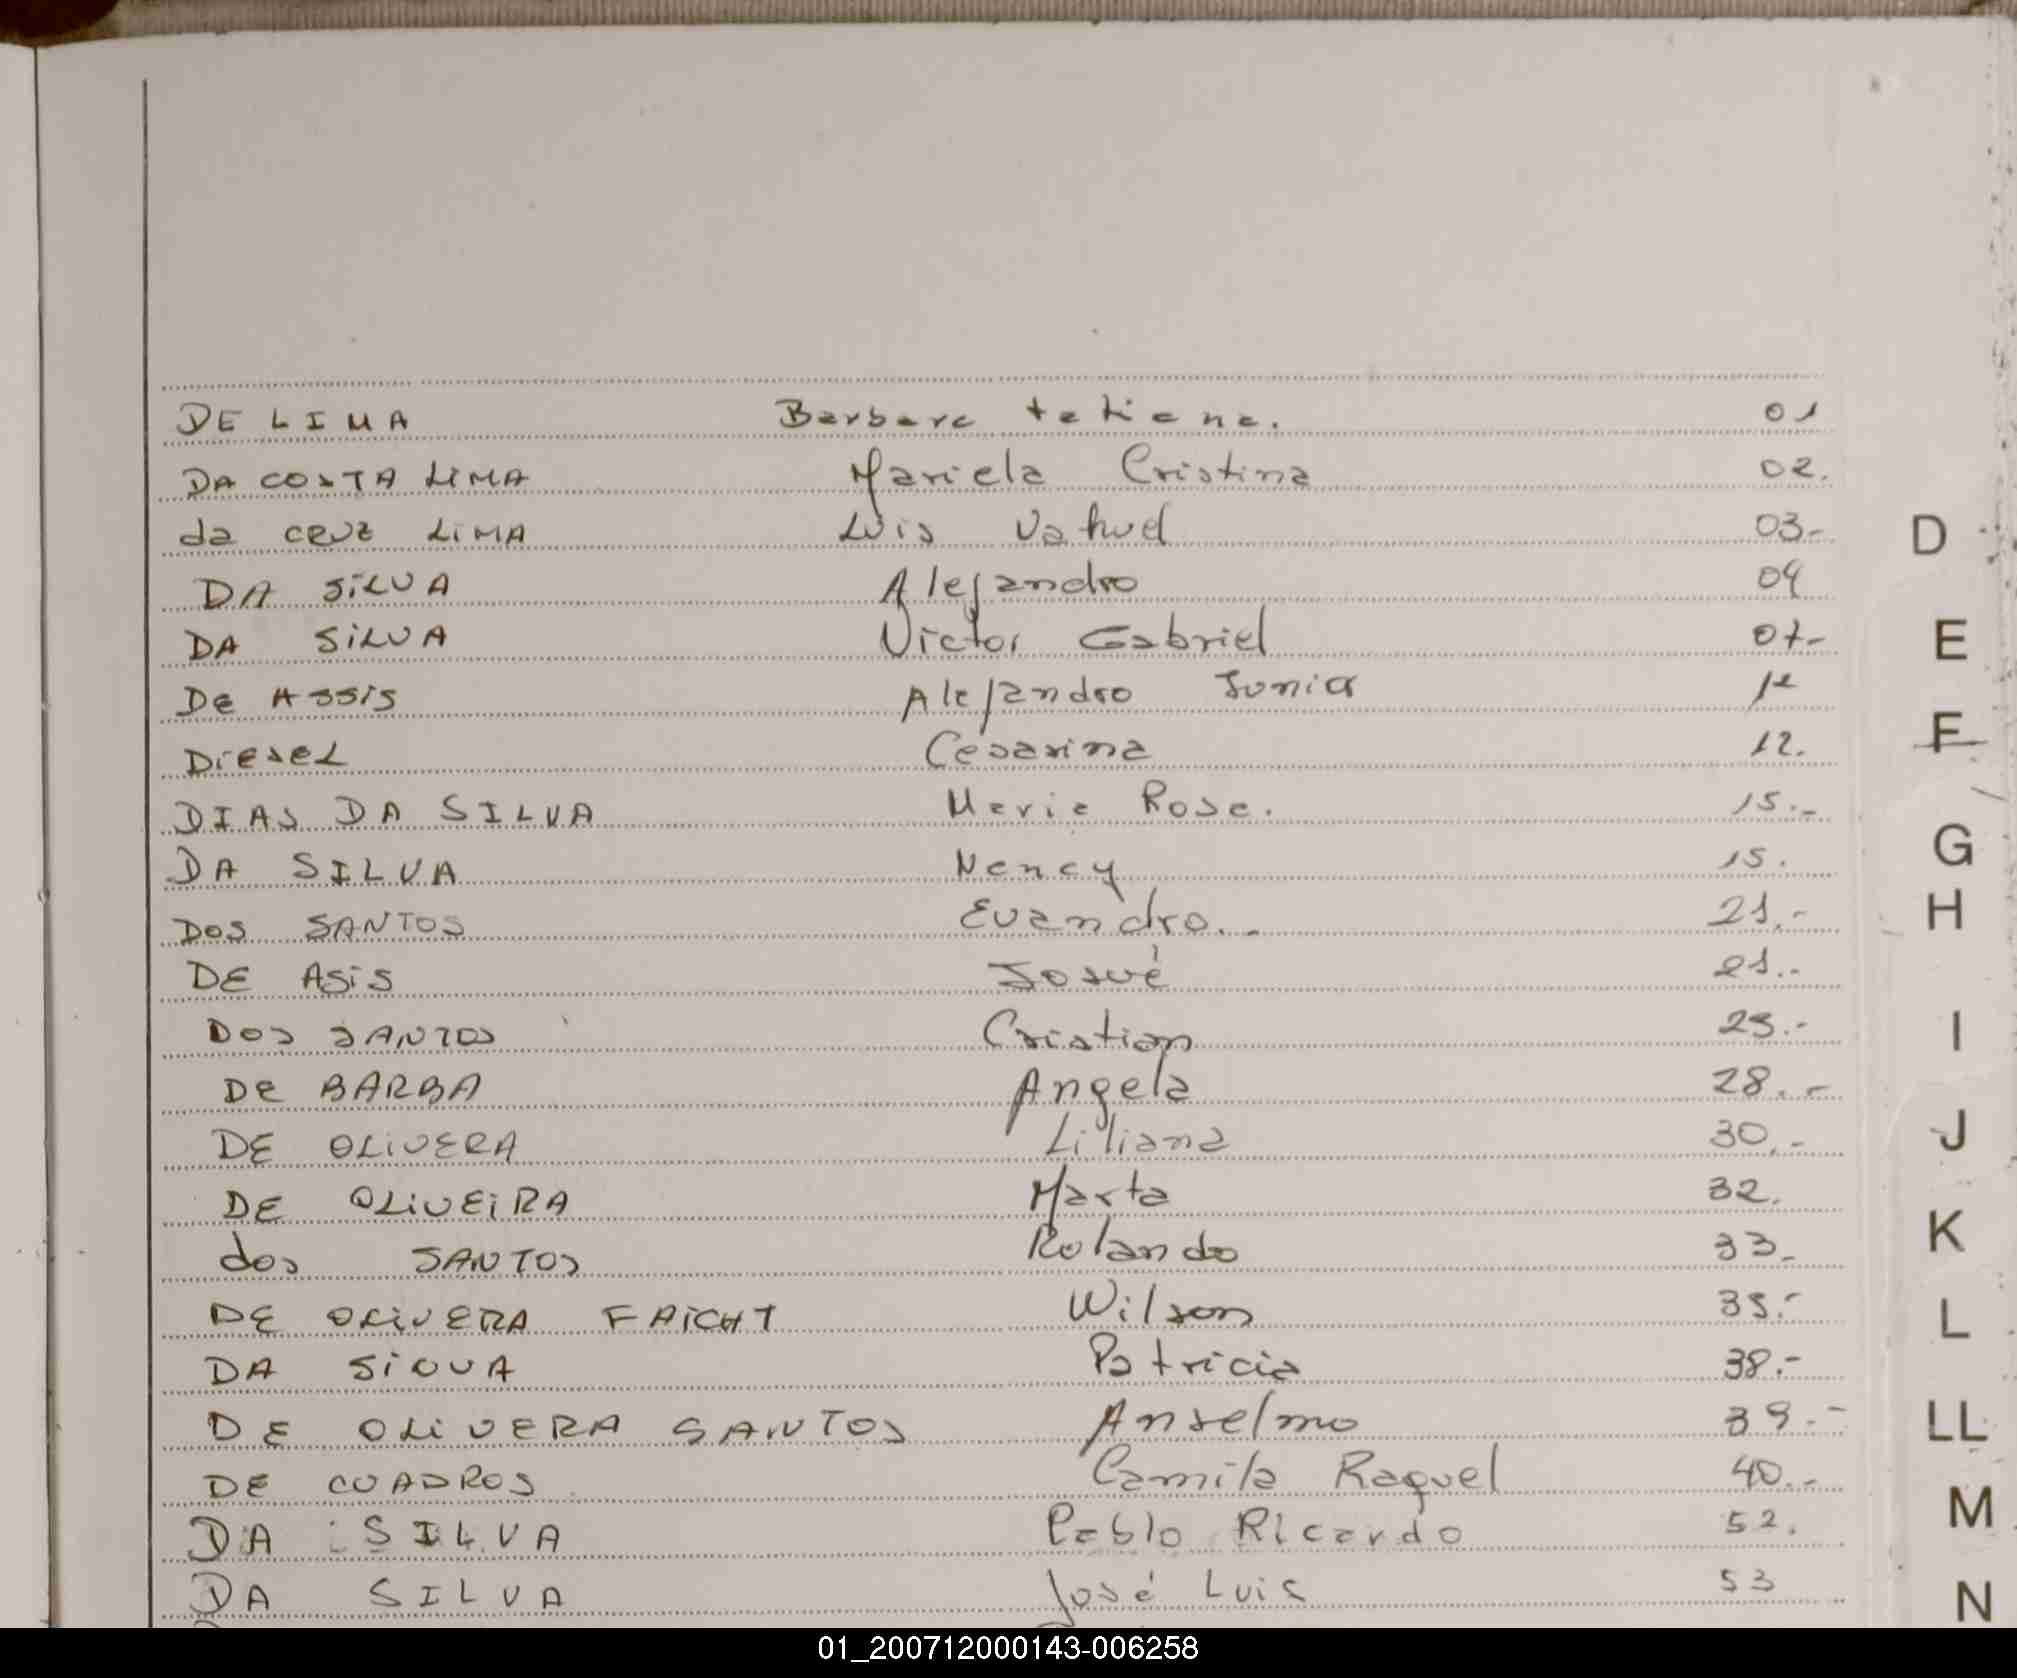 DE LIMA Barbara tatiana. 01
DA COSTA LIMA Mariela Cristina 02.
da CRUZ LIMA LUis Nahuel 03-
DA SiLVA Alejandro 04
DA SiLVA Victor Gabriel 07-
De Assis Alejandro Junior
DieseL Cesarina 12.
DIAS DA SILVA Maria Rosa. 15.-
DA SILVA Nancy 15.
DOS SANTOS Evandro.- 21.-
DE Asis Josué 21.-
DOS SANTOS Cristian 25.-
De BARBA Angela 28.-
DE OLiVERA Liliana 30.-
DE OLiVEiRA Marta 32.
dos SANTOS Rolando 33-
DE OLiVERA FAiCHT Wilson 35.-
DA SiLVA Patricia 38.-
DE OLiVERA SANTOS Anselmo 39.-
DE CUADROS Camila Raquel 40.-
DA SILVA Pablo Ricardo 52.
DA SILVA José Luis 53
D
E
F
G
H
I
J
K
L
LL
M
N
01_200712000143-006258